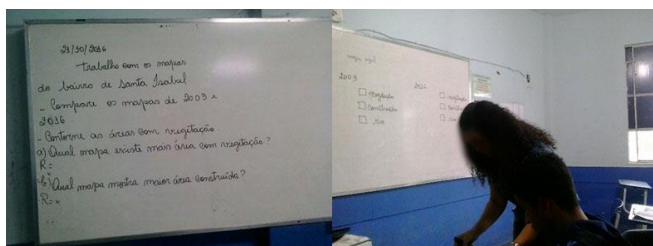 21/10/2016
Trabalho com os mapas
do bairro de Santa Isabel
- Compare os mapas de 2003 e
2016
- Contorne as áreas com vegetação
a) Qual mapa existe mais área com vegetação?
R=
b) Qual mapa mostra maior área construída?
R=
2003
vegetação
Construída
rio